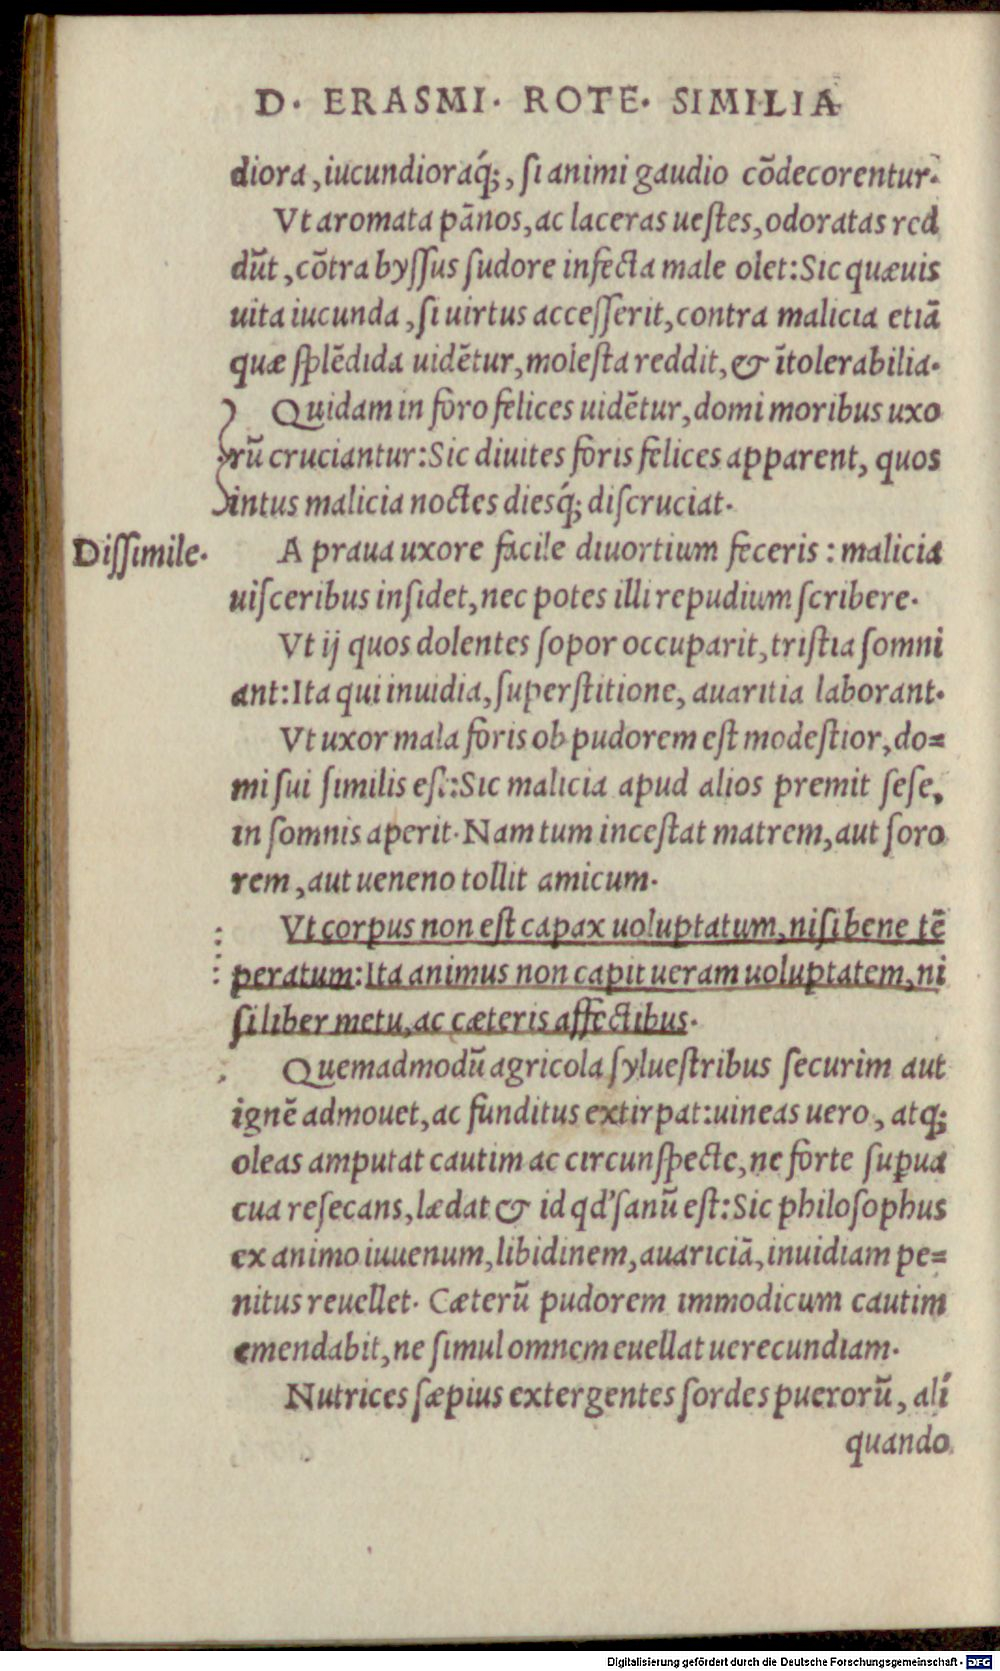 D. ERASMI. ROTE. SIMILIA
diora, iucundioraq́;, ſi animi gaudio cõdecorentur.
Vt aromata pãnos, ac laceras ueſtes, odoratas red
dũt, cõtra byſſus ſudore infecta male olet: Sic quæuis
uita iucunda, ſi uirtus acceſſerit, contra malicia etiã
quæ ſplẽdida uidẽtur, moleſta reddit, & ĩtolerabilia.
Quidam in foro felices uidẽtur, domi moribus uxo
rũ cruciantur: Sic diuites foris felices apparent, quos
intus malicia noctes diesq́; diſcruciat.
Diſſimile.
A praua uxore facile diuortium feceris: malicia
uiſceribus inſidet, nec potes illi repudium ſcribere.
Vt ij quos dolentes ſopor occuparit, triſtia ſomni
ant: Ita qui inuidia, ſuperſtitione, auaritia laborant.
Vt uxor mala foris ob pudorem eſt modeſtior, do=
mi ſui ſimilis eſt: Sic malicia apud alios premit ſeſe,
in ſomnis aperit. Nam tum inceſtat matrem, aut ſoro
rem, aut ueneno tollit amicum.
Vt corpus non eſt capax uoluptatum, niſi bene tẽ
peratum: Ita animus non capit ueram uoluptatem, ni
ſi liber metu, ac cæteris affectibus.
Quemadmodũ agricola ſylueſtribus ſecurim aut
ignẽ admouet, ac funditus extirpat: uineas uero, atq;
oleas amputat cautim ac circunſpecte, ne forte ſupua
cua reſecans, lædat & id qd' ſanũ eſt: Sic philoſophus
ex animo iuuenum, libidinem, auariciã, inuidiam pe=
nitus reuellet. Cæterũ pudorem immodicum cautim
emendabit, ne ſimul omnem euellat uerecundiam.
Nutrices ſæpius extergentes ſordes puerorũ, alí
quando
Digitalisierung gefördert durch die Deutsche Forschungsgemeinschaft - DFG